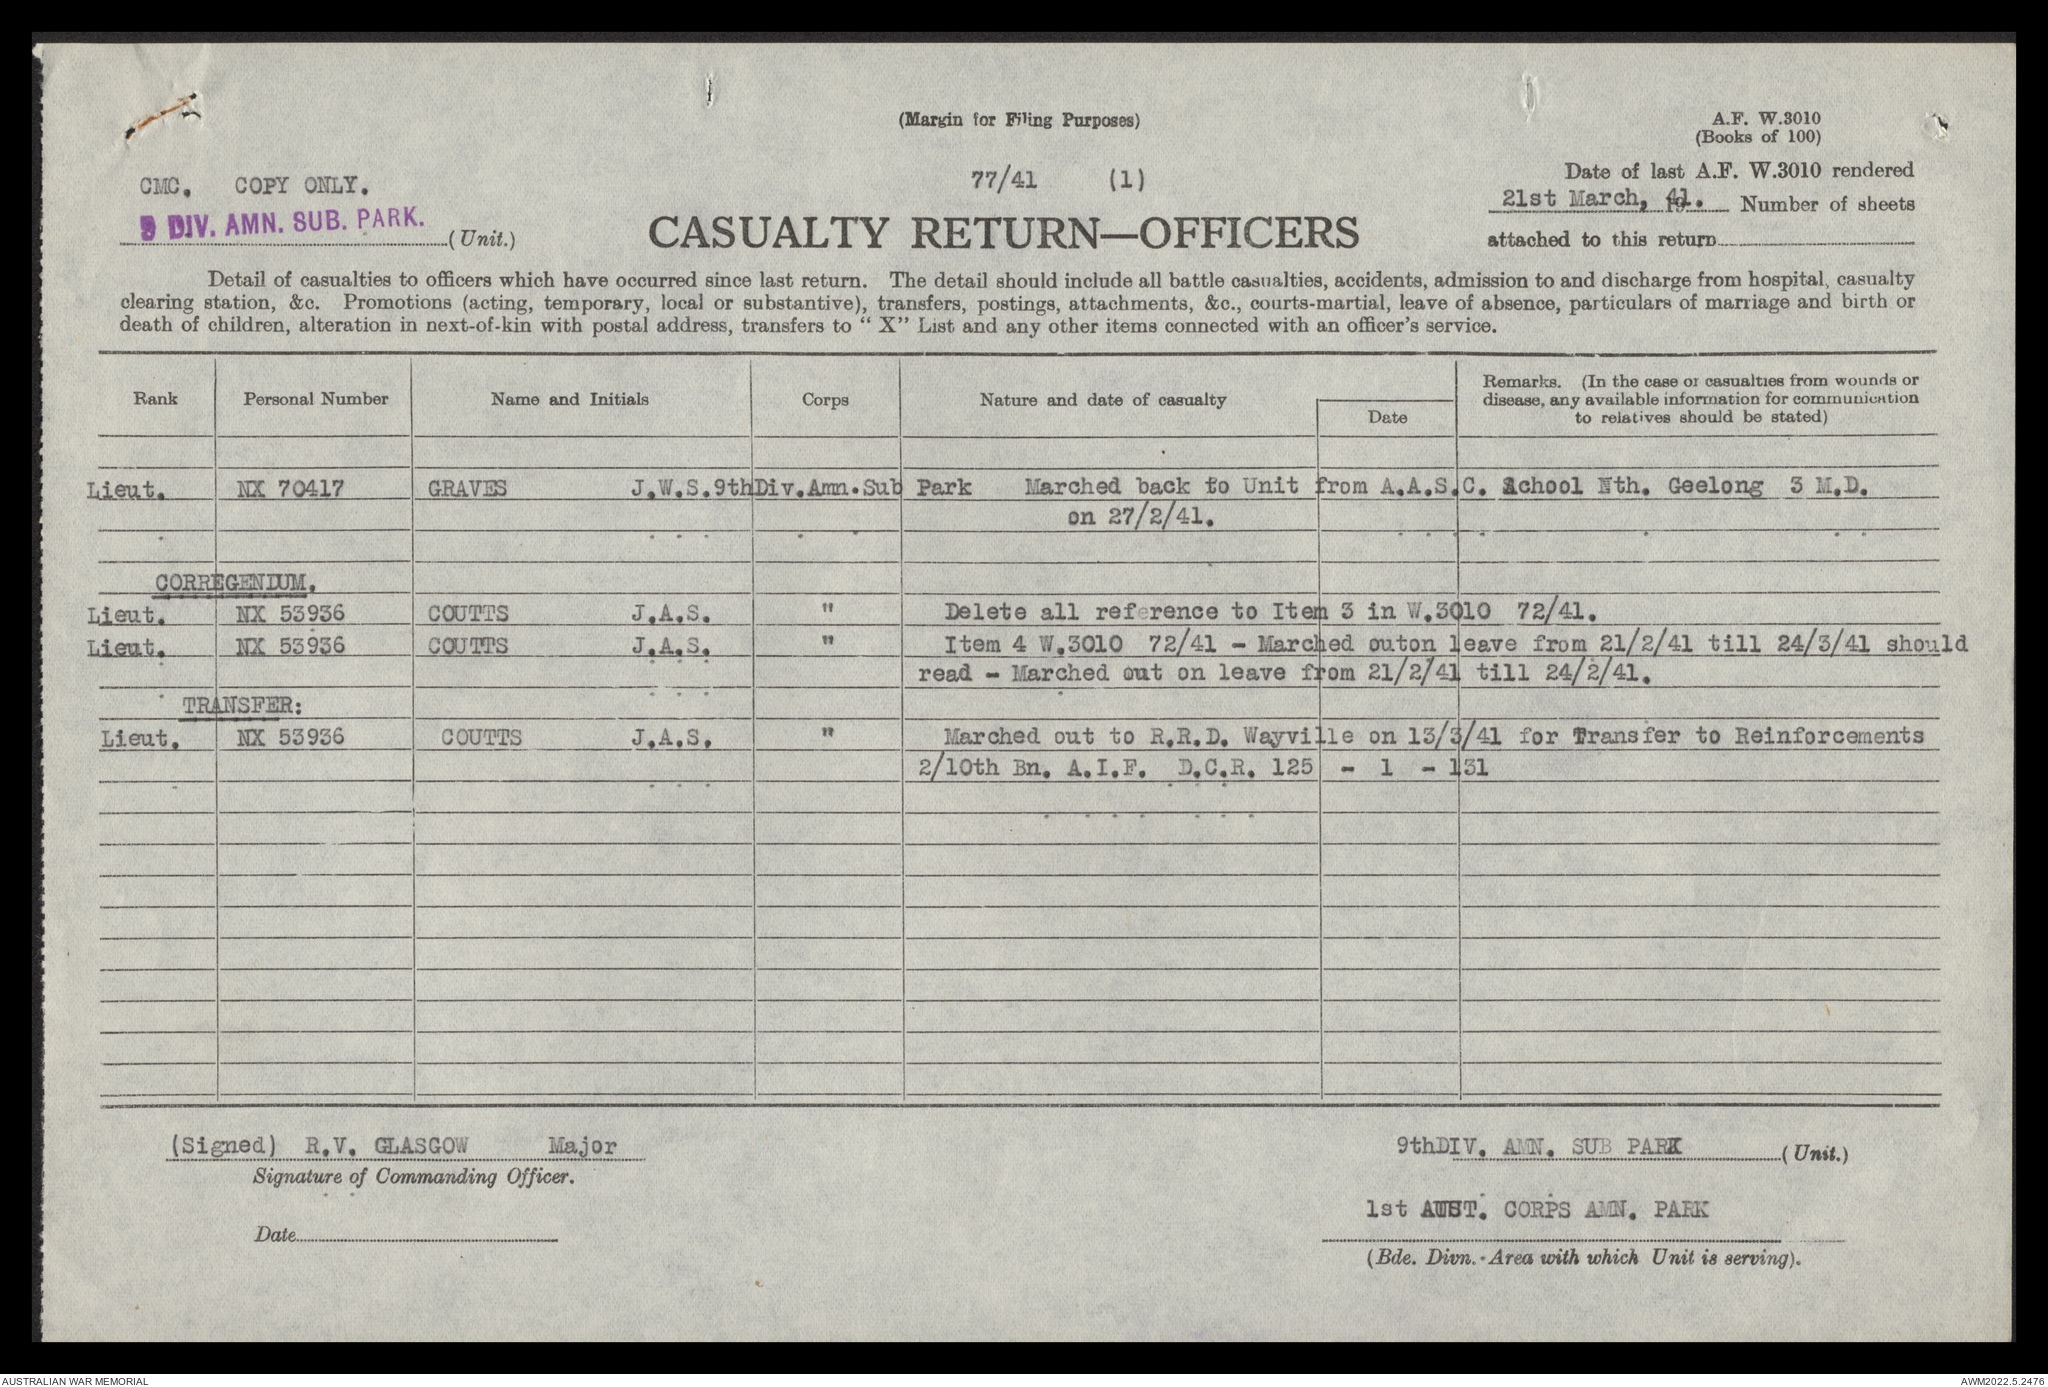 (Margin for Filing Purposes)
A.F. W.3010
(Books of 100)
CMC. COPY ONLY.
77/41 (1)
Date of last A.F. W.3010 rendered
21st March, 41. Number of sheets
attached to this return
9 DIV. AMN. SUB. PARK. (Unit.)
CASUALTY RETURN—OFFICERS
Detail of casualties to officers which have occurred since last return. The detail should include all battle casualties, accidents, admission to and discharge from hospital, casualty
clearing station, &c. Promotions (acting, temporary, local or substantive), transfers, postings, attachments, &c., courts-martial, leave of absence, particulars of marriage and birth or
death of children, alteration in next-of-kin with postal address, transfers to “ X” List and any other items connected with an officer's service.
Rank Personal Number Name and Initials Corps Nature and date of casualty Date
Remarks. (In the case of casualties from wounds or
disease, any available information for communication
to relatives should be stated)
Lieut. NX 70417 GRAVES J.W.S. 9thDiv.Amn.Sub Park Marched back to Unit from A.A.S.C. School Nth. Geelong 3 M.D.
on 27/2/41.
CORREGENDUM.
Lieut. NX 53936 COUTTS J.A.S. " Delete all reference to Item 3 in W.3010 72/41.
Lieut. NX 53936 COUTTS J.A.S. " Item 4 W.3010 72/41 - Marched outon leave from 21/2/41 till 24/3/41 should
read - Marched out on leave from 21/2/41 till 24/2/41.
TRANSFER:
Lieut. NX 53936 COUTTS J.A.S. " Marched out to R.R.D. Wayville on 13/3/41 for Transfer to Reinforcements
2/10th Bn. A.I.F. D.C.R. 125 - 1 - 131
(Signed) R.V. GLASGOW Major
Signature of Commanding Officer.
Date
9thDIV. AMN. SUB PARK (Unit.)
1st AUST. CORPS AMN. PARK
(Bde. Divn. Area with which Unit is serving).
AUSTRALIAN WAR MEMORIAL
AWM2022.5.2476